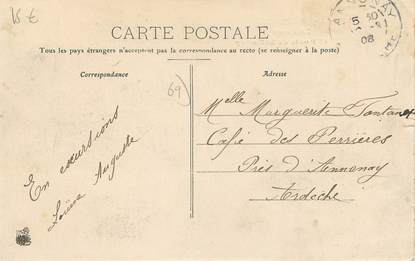 15 €
CARTE POSTALE
Tous les pays étrangers n'acceptent pas la correspondance au recto (se renseigner à la poste)
Correspondance
Adresse
69
08
Melle Marguerite Fontanet
Café des Perrières
Près d'Annonay
Ardèche
En excursions
Auguste